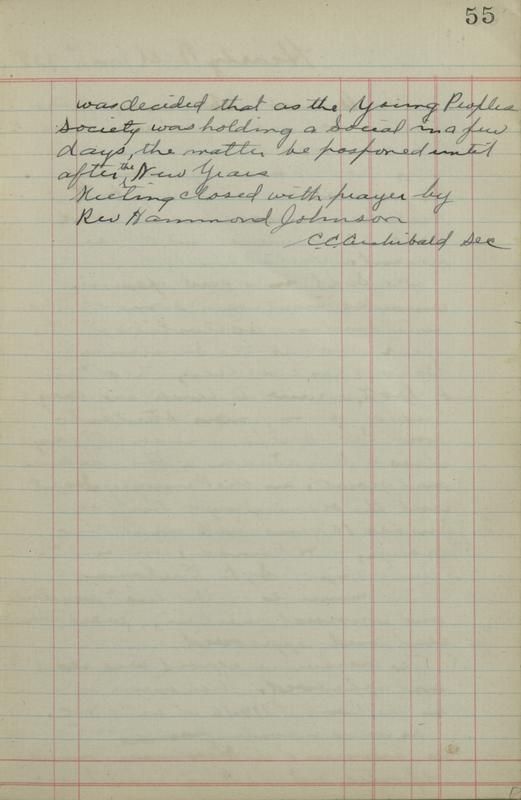 55
was decided that as the Young Peoples
Society was holding a Social in a few
days, the matter be posponed until
after the New Years
Meeting closed with prayer by
Rev Hammond Johnson
C.C. Archibald Sec